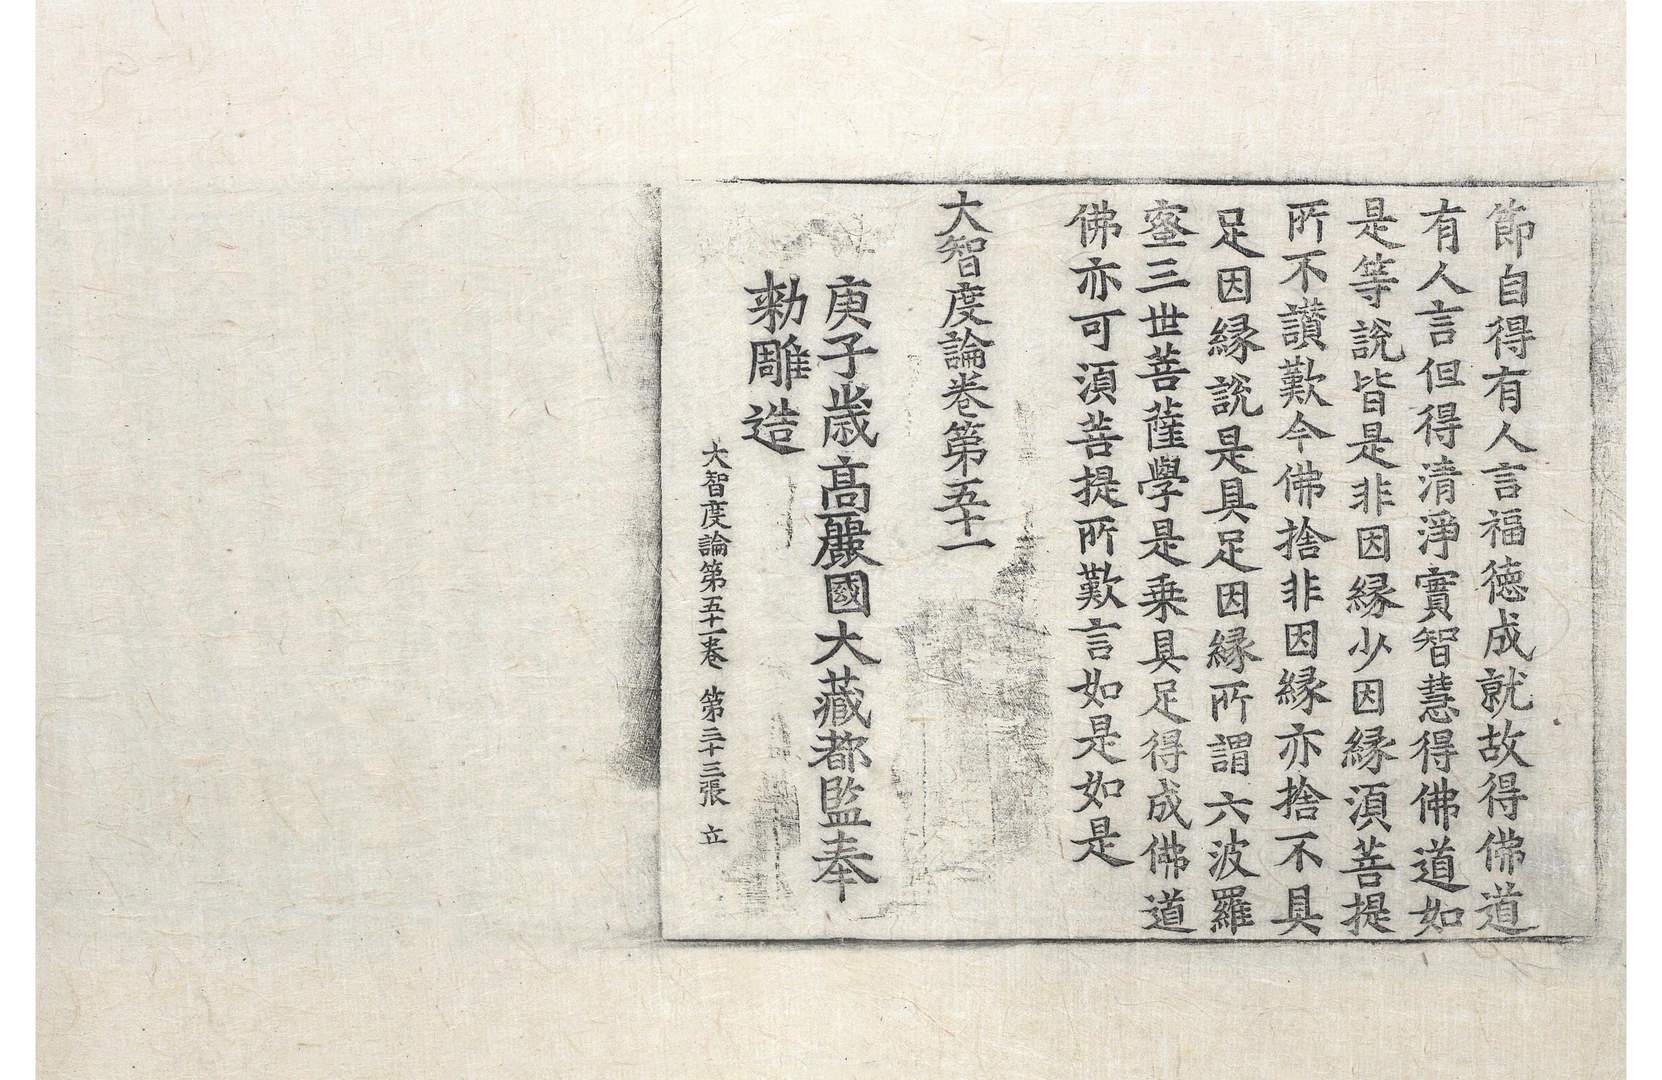 節自得有人言福德成就故得佛道
有人言但得清淨實智慧得佛道如
是等說皆是非因縁少因縁湏菩提
所不讃歎今佛捨非因縁亦捨不具
足因縁說是具足因縁所謂六波羅
蜜三世菩薩學是乗具足得成佛道
佛亦可湏菩提所歎言如是如是
大智度論卷第五十一
庚子歳高麗國大藏都監奉
勑雕造
大智度論第五十一卷 第二十三張 立